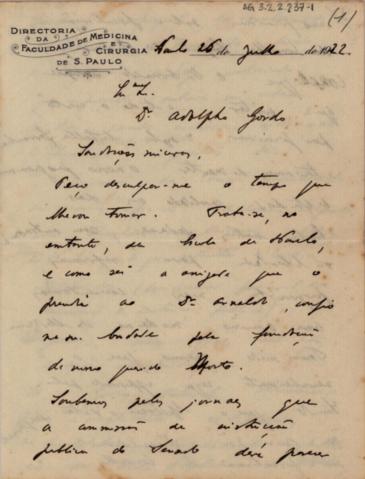 AG 3.2.2.237-1
(1)
DIRECTORIA
DA
FACULDADE DE MEDICINA
E
CIRURGIA
DE S. PAULO
S. Paulo 26 de Julho de 1922.
Dr. Adolpho Gordo
Saudações
Peço desculpar-me o tempo que
tomar. Trata-se, no
emtanto, da Escola de S. Paulo,
e como sei a amizade que o
prendia ao Dr. Arnaldo, confio
na sua bondade pela
de nosso querido Morto.
Soubemos pelos jornaes que
a commissão de instrucção
publica do Senado deve